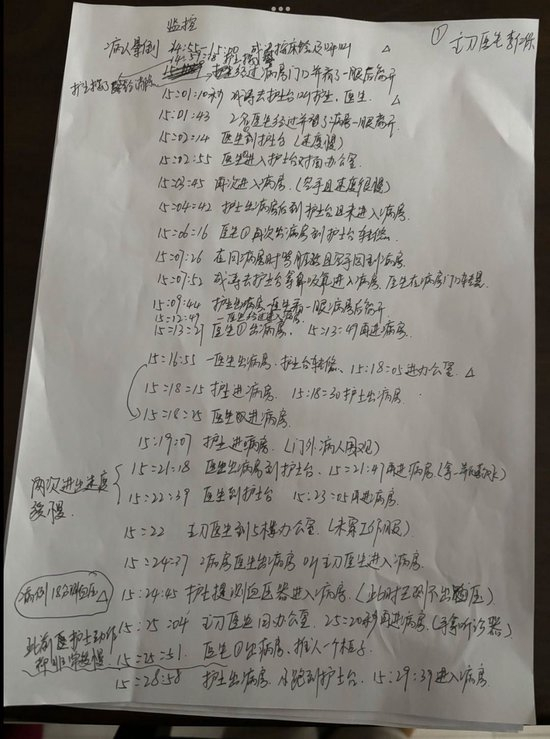 监控
① 主刀医生
病人晕倒 14:55-15:00
护士经过病房门口并看了一眼后离开
15:01:10秒 去护士台叫护士、医生
15:01:43 2名医生经过并看了病房一眼离开
15:02:14 医生到护士台(速度慢)
15:02:55 医生进入护士台对面办公室
15:03:45 再次进入病房(空手且速度很慢)
15:04:42 护士出病房后到护士台且未进入病房
15:06:16 医生①再次出病房到护士台转悠
15:07:26 在回病房时 且空手回到病房
15:07:52 去护士台拿 进入病房,医生在病房门口转悠
15:09:44 护士出病房,医生看一眼病房后离开
15:12:49 一医生 进入病房
15:13:27 医生①出病房、15:13:49再进病房
15:16:55 一医生出病房、护士台转悠、15:18:05进办公室 △
15:18:15 护士进病房 15:18:30护士出病房
15:18:25 医生 进病房
15:19:07 护士进病房(门外病人围观)
两次进出速度缓慢
15:21:18 医生出病房到护士台、15:21:47再进病房
15:22:39 医生到护士台 15:23:05再进病房
15:22 主刀医生到5楼办公室(未穿工作服)
15:24:37 病房医生出病房叫主刀医生进入病房
病倒18分钟
15:24:45 护士提测血压器进入病房(此时主观测不出血压)
15:25:04 主刀医生回办公室 25:20秒再进病房(手拿听诊器)
此前医护士动作都非常缓慢
15:25:51 医生①出病房、推入一个柜子
15:28:58 护士出病房 小跑到护士台、15:29:39进入病房